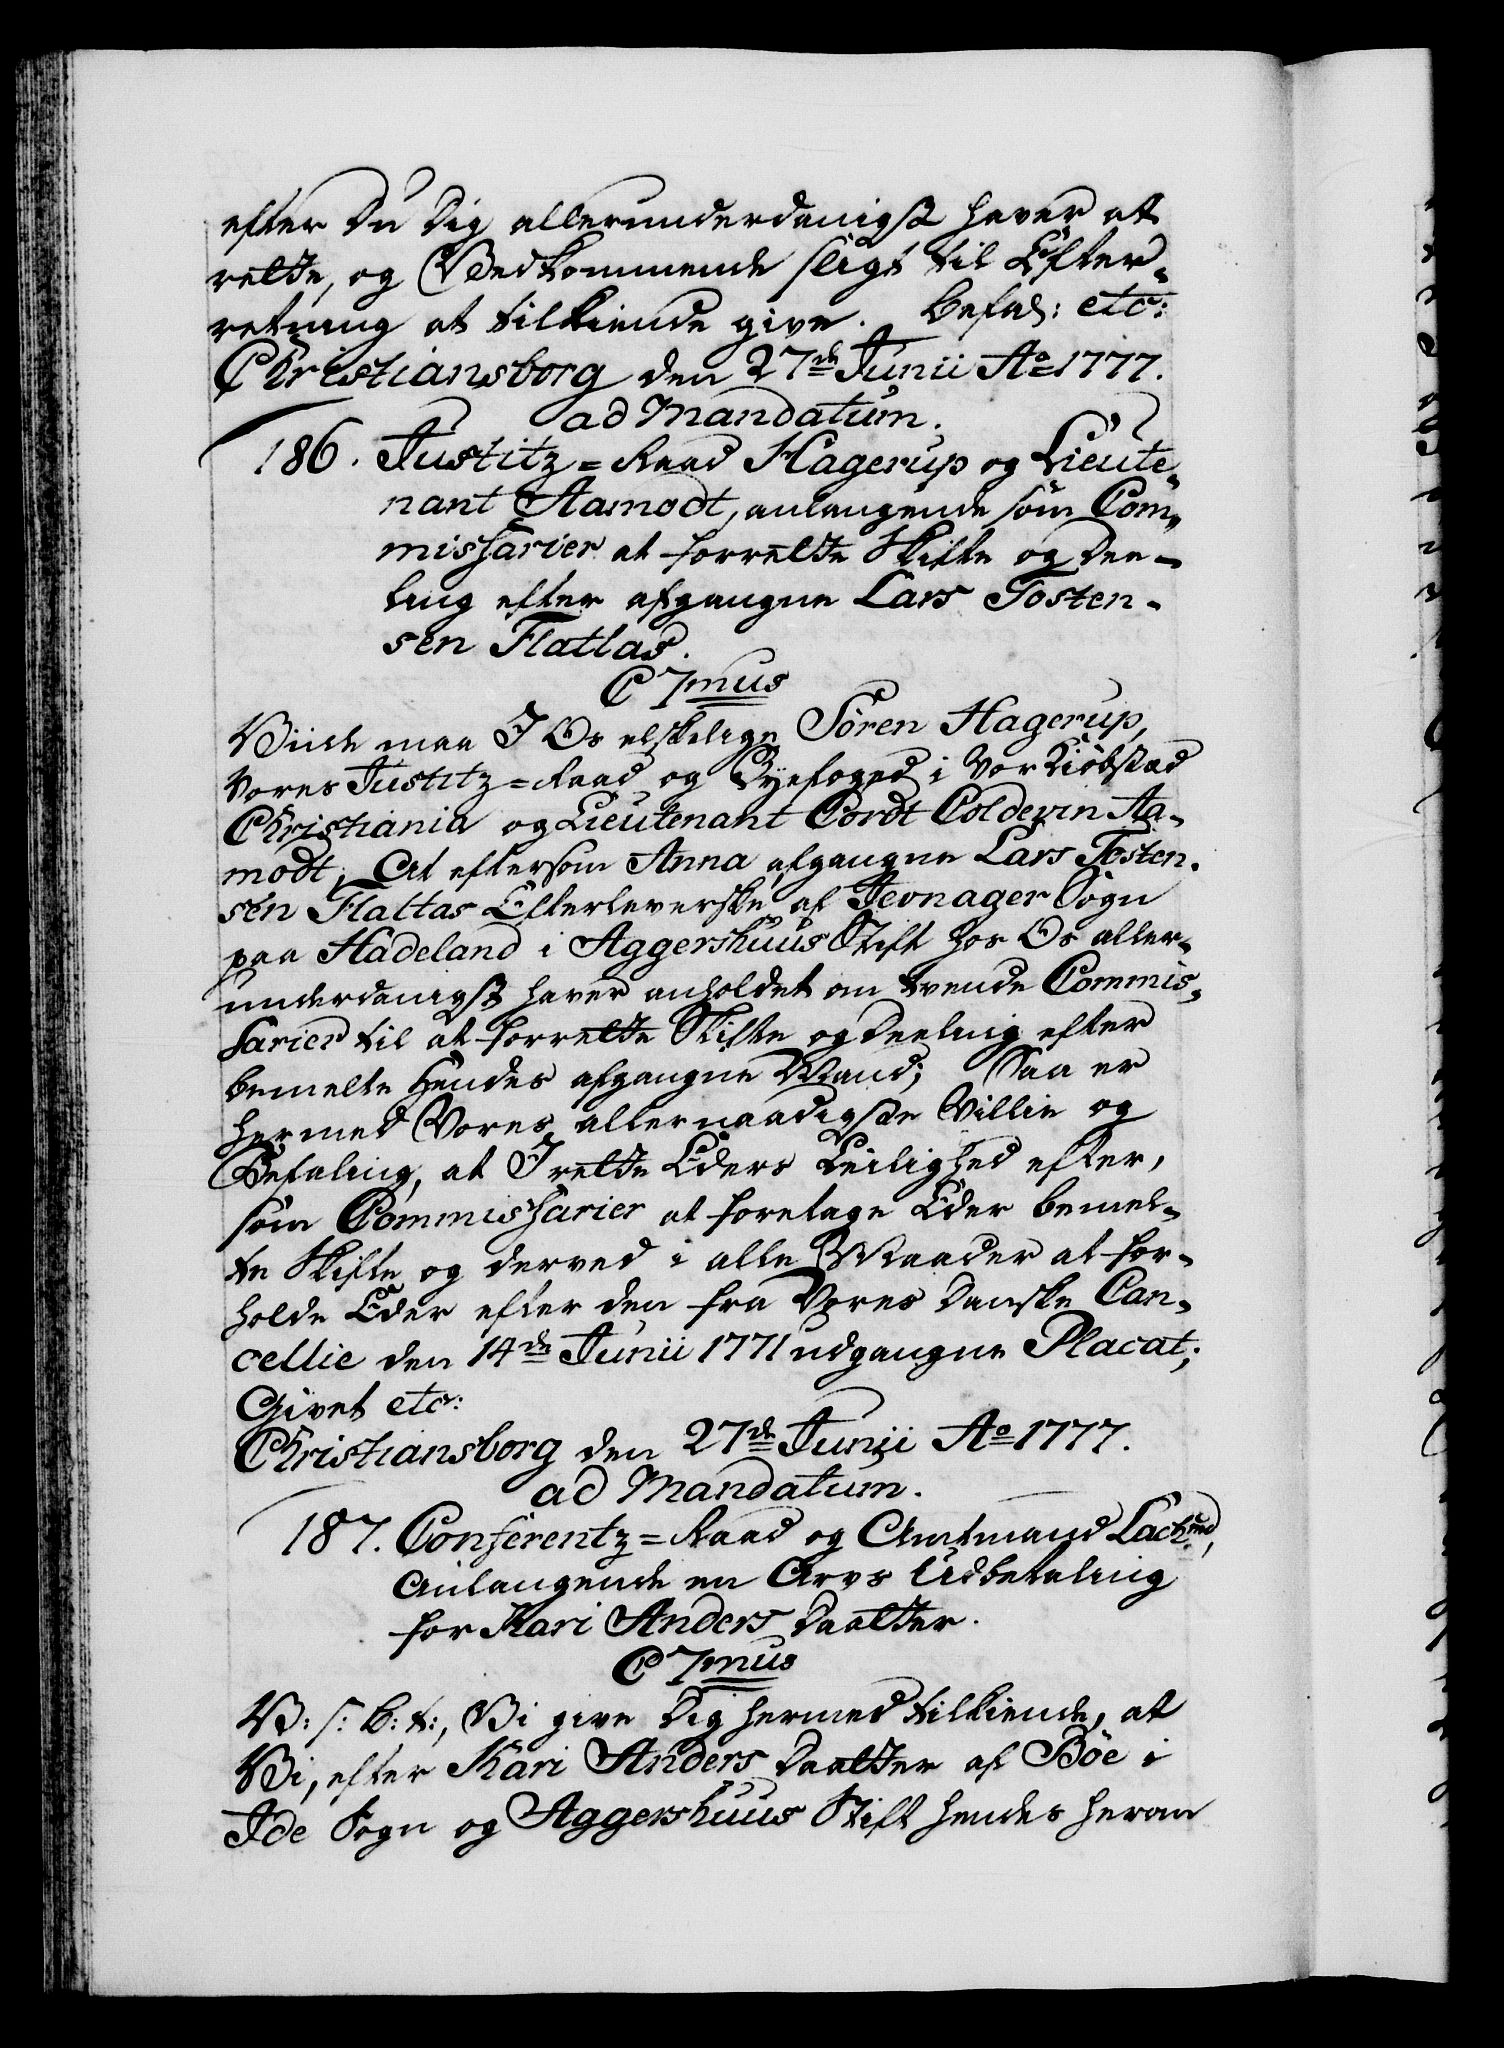 efter Du Dig allerunderdanigst haver at
rette, og Vedkommende sligt til Efter-
retning at tilkiende give. Befal: etc:
Christiansborg den 27de Junii Ao 1777.
ad Mandatum.
186. Justitz=Raad Hagerup og Lieute-
nant Aamodt, anlangende som Com-
missarier at forrette Skifte og Dee-
ling efter afgangne Lars Tosten-
sen Flattas.
C 7mus
Viide maa I Os elskelige Sören Hagerup,
Vores Justitz=Raad og Byefoged i Vor Kiöbstad
Christiania og Lieutenant Cordt Coldevin Aa-
modt, At eftersom Anna, afgangne Lars Tosten-
sen Flattas Efterleverske af Jevnager Sogn
paa Hadeland i Aggershuus Stift hos Os aller-
underdanigst haver anholdet om tvende Commis-
sarier til at forrette Skifte og Deeling efter
bemelte Hendes afgangne Mand; Saa er
hermed Vores allernaadigste Villie og
Befaling, at I rette Eders Leilighed efter,
som Commissarier at foretage Eder bemel-
te Skifte og derved i alle Maader at for-
holde Eder efter den fra Vores Danske Can-
cellie den 14de Junii 1771 udgangne Placat;
Givet etc:
Christiansborg den 27de Junii Ao 1777.
ad Mandatum.
187. Conferentz=Raad og Amtmand Lachmd,
Anlangende en Arvs Udbetaling
for Kari Anders Daatter.
C 7mus
V: s: b: t:, Vi give Dig hermed tilkiende, at
Vi, efter Kari Anders Daatter af Böe i
Ide Sogn og Aggershuus Stift hendes herom